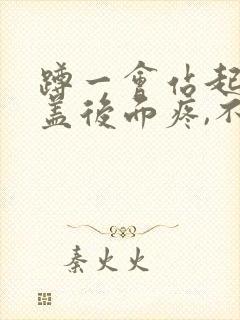 蹲一會佔起
盖後而疼,不
秦火火